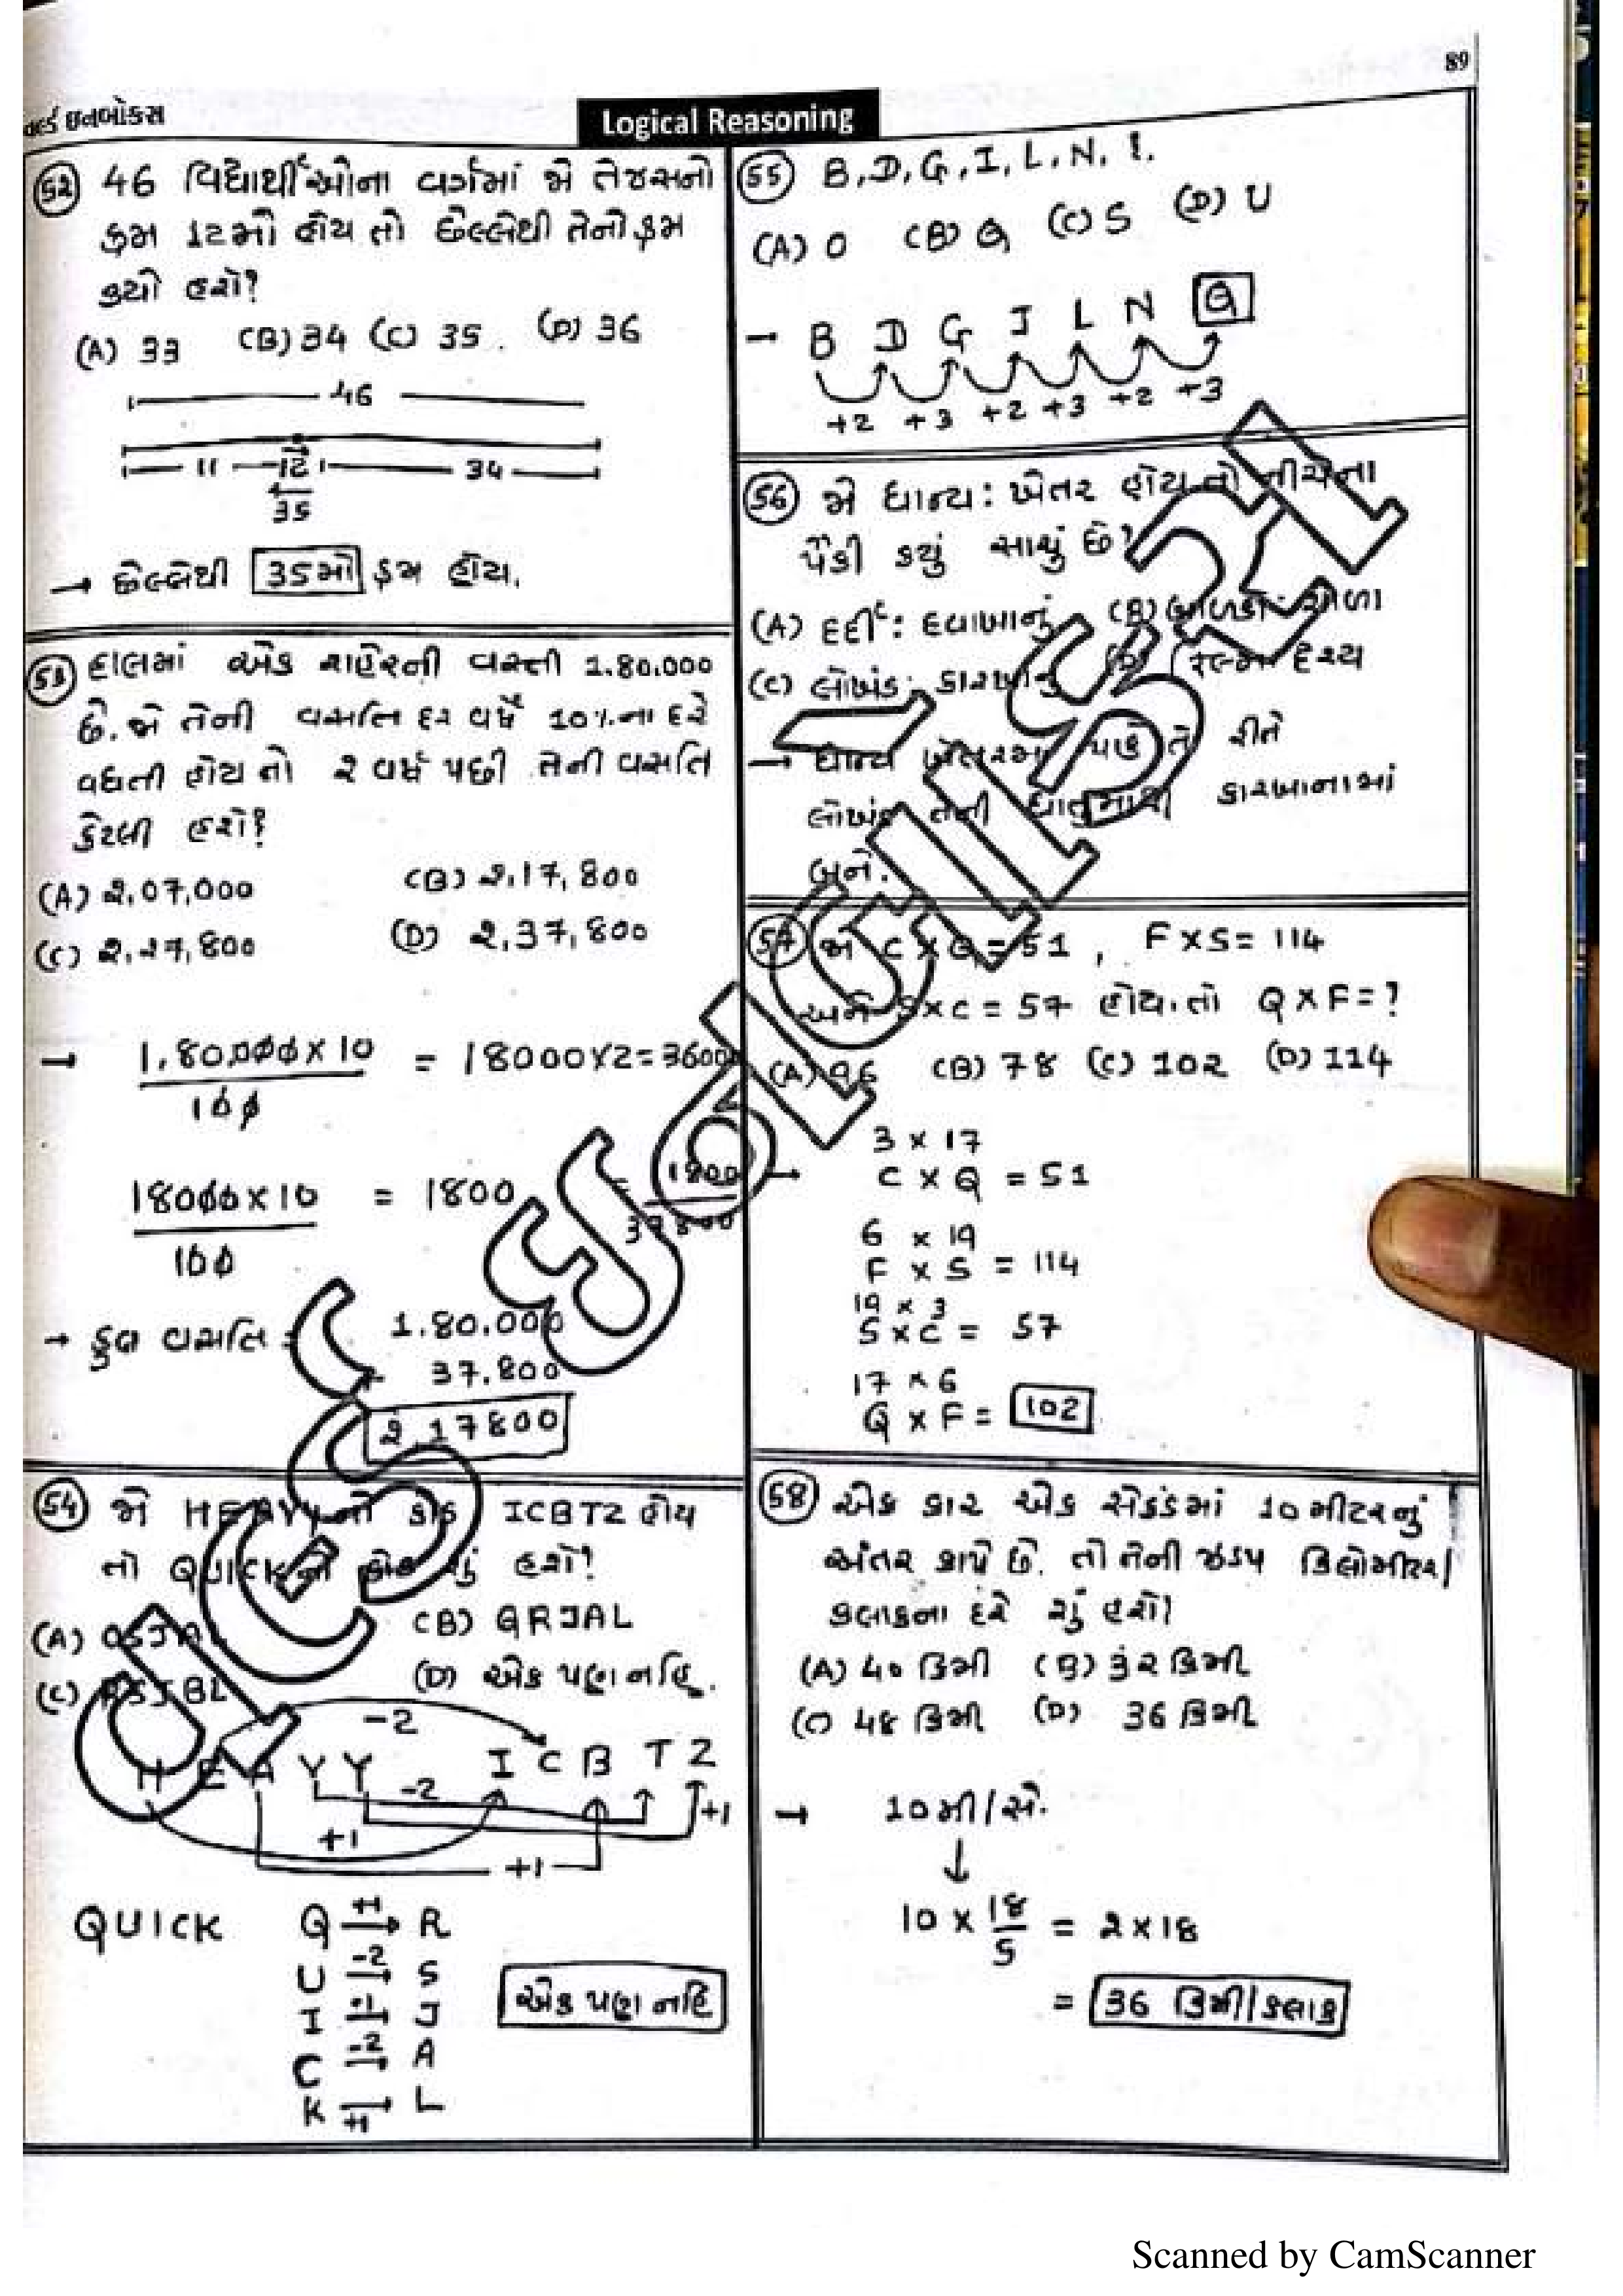 89
વર્લ્ડ ઇનબોક્સ
Logical Reasoning
52 46 વિદ્યાર્થીઓના વર્ગમાં જો તેજસનો
ક્રમ 12મો હોય તો છેલ્લેથી તેનો ક્રમ
કયો હશે?
(A) 33 (B) 34 (C) 35. (D) 36
46
11 12 34
35
→ છેલ્લેથી 35મો ક્રમ હોય.
53 હાલમાં એક શહેરની વસ્તી 1.80.000
છે. જો તેની વસતિ દર વર્ષે 10%ના દરે
વધતી હોય તો 2 વર્ષ પછી તેની વસતિ
કેટલી હશે?
(A) 2,07,000 (B) 2,17,800
(C) 2,27,800 (D) 2,37,800
→ 1,80,000 x 10 = 18000x2 = 36000
100
18000 x 10 = 1800
100
1800
37800
→ કુલ વસતિ = 1.80.000
+ 37.800
2,17800
54 જો HEAVYનો કોડ ICBTZ હોય
તો QUICKનો કોડ શું હશે?
(A) QSJAL (B) QRJAL
(C) RSJBL (D) એક પણ નહિ.
-2
H E A V Y I C B T Z
-2 +1
+1
+1
QUICK Q +1→ R
U -2→ S
I +1→ J
C -2→ A
K +1→ L
એક પણ નહિ
55 B, D, G, I, L, N, ?.
(A) O (B) Q (C) S (D) U
→ B D G I L N Q
+2 +3 +2 +3 +2 +3
56 જો ધાન્ય : ખેતર હોય તો નીચેના
પૈકી કયું સાચું છે?
(A) દર્દી : દવાખાનું (B) બાળકો : શાળા
(C) લોખંડ : કારખાનું (D) ફિલ્મ દૃશ્ય
→ ધાન્ય ખેતરમાં પાકે તે રીતે
લોખંડ તેની ધાતુમાંથી કારખાનામાં
બને.
57 જો C x Q = 51, F x S = 114
અને S x C = 57 હોય. તો Q x F = ?
(A) 96 (B) 78 (C) 102 (D) 114
→ 3 x 17
C x Q = 51
6 x 19
F x S = 114
19 x 3
S x C = 57
17 x 6
Q x F = 102
58 એક કાર એક સેકંડમાં 10 મીટરનું
અંતર કાપે છે. તો તેની ઝડપ કિલોમીટર/
કલાકના દરે શું હશે?
(A) 40 કિમી (B) 32 કિમી
(C) 48 કિમી (D) 36 કિમી
→ 10 મી/સે.
↓
10 x 18/5 = 2 x 18
= 36 કિમી/કલાક
Scanned by CamScanner